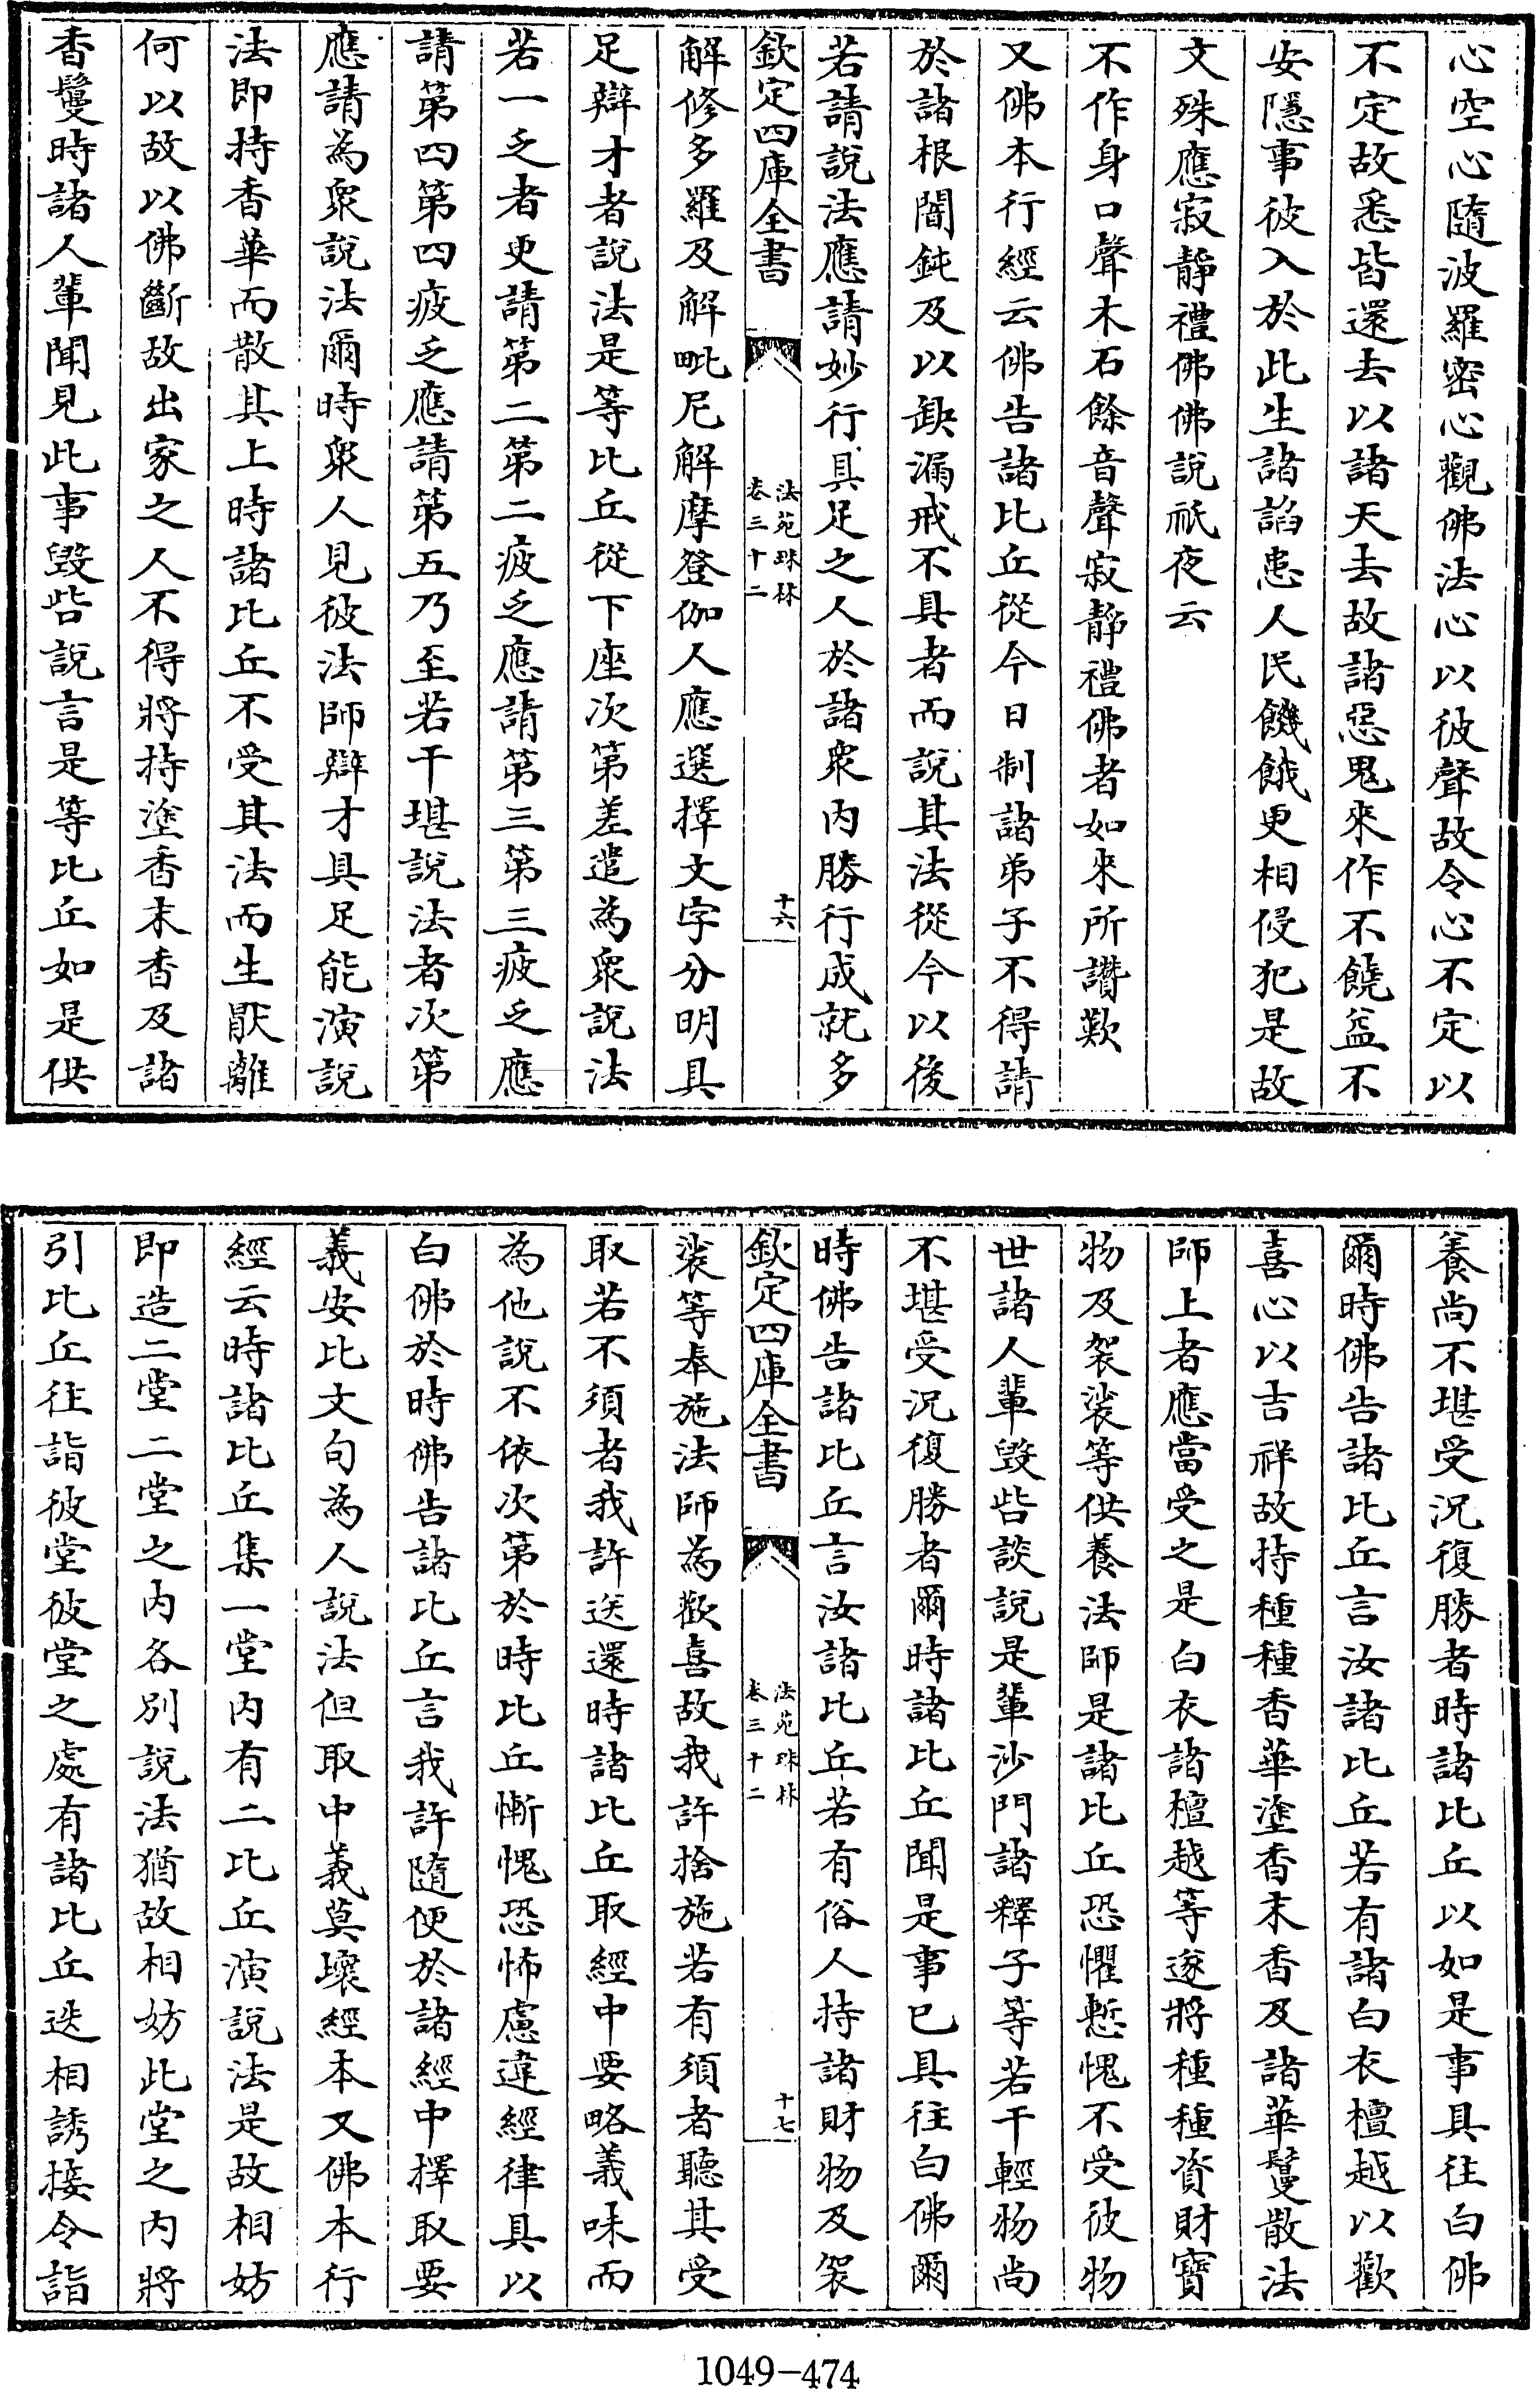 心空心隨波羅密心觀佛法心以彼聲故令心不定以
不定故悉皆還去以諸天去故諸惡鬼來作不饒益不
安隱事彼入於此生諸諂患人民饑餓更相侵犯是故
文殊應寂靜禮佛佛說祇夜云
不作身口聲木石餘音聲寂靜禮佛者如來所讚歎
又佛本行經云佛告諸比丘從今日制諸弟子不得請
於諸根闇鈍及以缺漏戒不具者而說其法從今以後
若請說法應請妙行具足之人於諸衆內勝行成就多
欽定四庫全書
法苑珠林
卷三十二
十六
解修多羅及解毗尼解摩登伽人應選擇文字分明具
足辯才者說法是等比丘從下座次第差遣為衆說法
若一乏者更請第二第二疲乏應請第三第三疲乏應
請第四第四疲乏應請第五乃至若干堪說法者次第
應請為衆說法爾時衆人見彼法師辯才具足能演說
法即持香華而散其上時諸比丘不受其法而生厭離
何以故以佛斷故出家之人不得將持塗香末香及諸
香鬘時諸人輩聞見此事毀呰說言是等比丘如是供
養尚不堪受況復勝者時諸比丘以如是事具往白佛
爾時佛告諸比丘言汝諸比丘若有諸白衣檀越以歡
喜心以吉祥故持種種香華塗香末香及諸華鬘散法
師上者應當受之是白衣諸檀越等遂將種種資財寶
物及袈裟等供養法師是諸比丘恐懼慙愧不受彼物
世諸人輩毀呰談說是輩沙門諸釋子等若干輕物尚
不堪受況復勝者爾時諸比丘聞是事已具往白佛爾
時佛告諸比丘言汝諸比丘若有俗人持諸財物及袈
欽定四庫全書
法苑珠林
卷三十二
十七
裟等奉施法師為歡喜故我許捨施若有須者聽其受
取若不須者我許送還時諸比丘取經中要略義味而
為他說不依次第於時比丘慚愧恐怖慮違經律具以
白佛於時佛告諸比丘言我許隨便於諸經中擇取要
義安比文句為人說法但取中義莫壞經本又佛本行
經云時諸比丘集一堂內有二比丘演說法是故相妨
即造二堂二堂之內各別說法猶故相妨此堂之內將
引比丘往詣彼堂彼堂之處有諸比丘迭相誘接令詣
1049-474